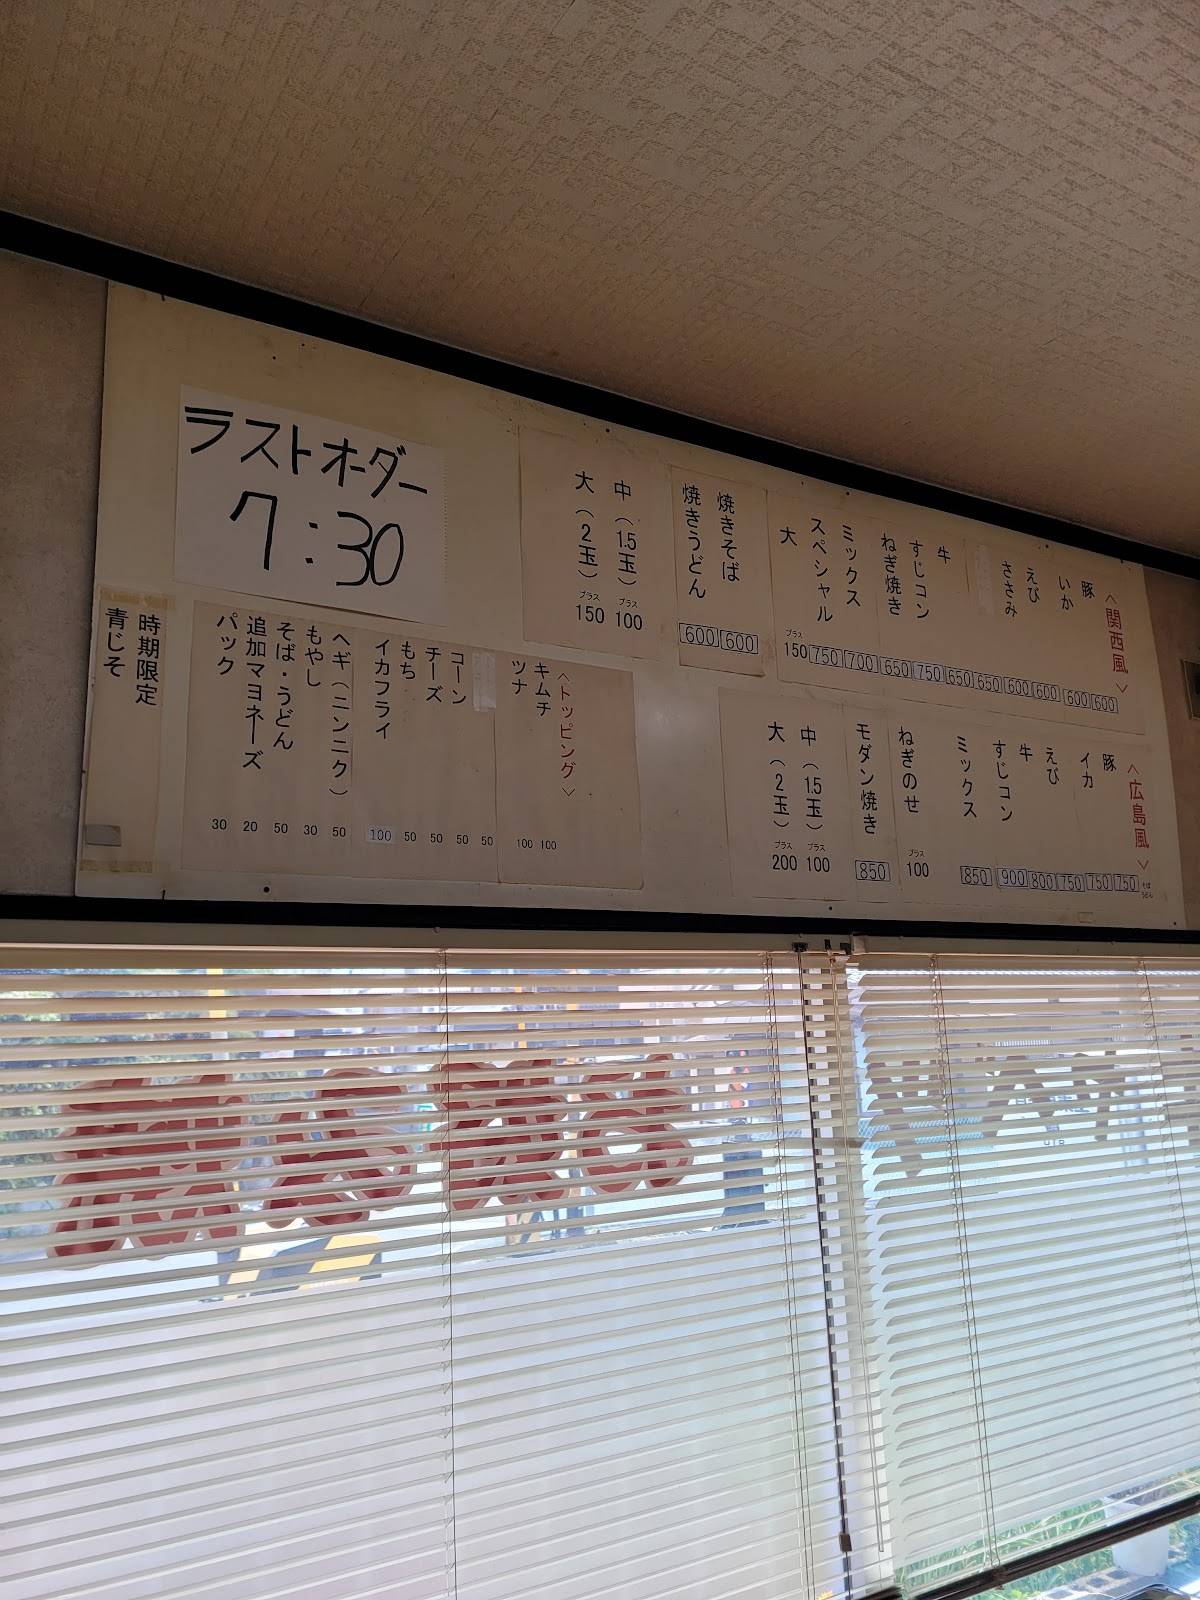 ＜関西風＞
豚 600
いか 600
えび 600
ささみ 600
650
牛 650
すじコン 750
ねぎ焼き 650
ミックス 700
スペシャル 750
大 プラス150
焼きそば 600
焼きうどん 600
中（1.5玉） プラス100
大（2玉） プラス150
ラストオーダー
7:30
＜広島風＞
そば うどん
豚 750
イカ 750
えび 750
牛 800
すじコン 900
ミックス 850
ねぎのせ プラス100
モダン焼き 850
中（1.5玉） プラス100
大（2玉） プラス200
＜トッピング＞
キムチ 100
ツナ 100
50
コーン 50
チーズ 50
もち 50
イカフライ 100
ヘギ（ニンニク） 50
もやし 30
そば・うどん 50
追加マヨネーズ 20
パック 30
時期限定
青じそ